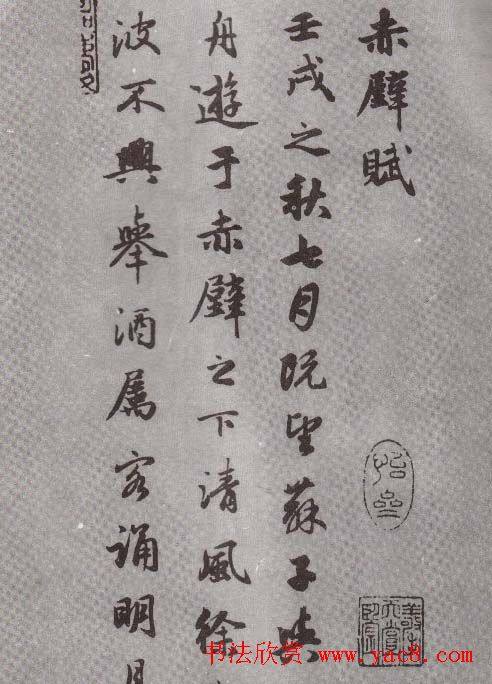 赤壁賦
壬戌之秋七月既望蘇子與
舟遊于赤壁之下清風徐
波不興舉酒屬客誦明月
书法欣赏
www.yac8.com